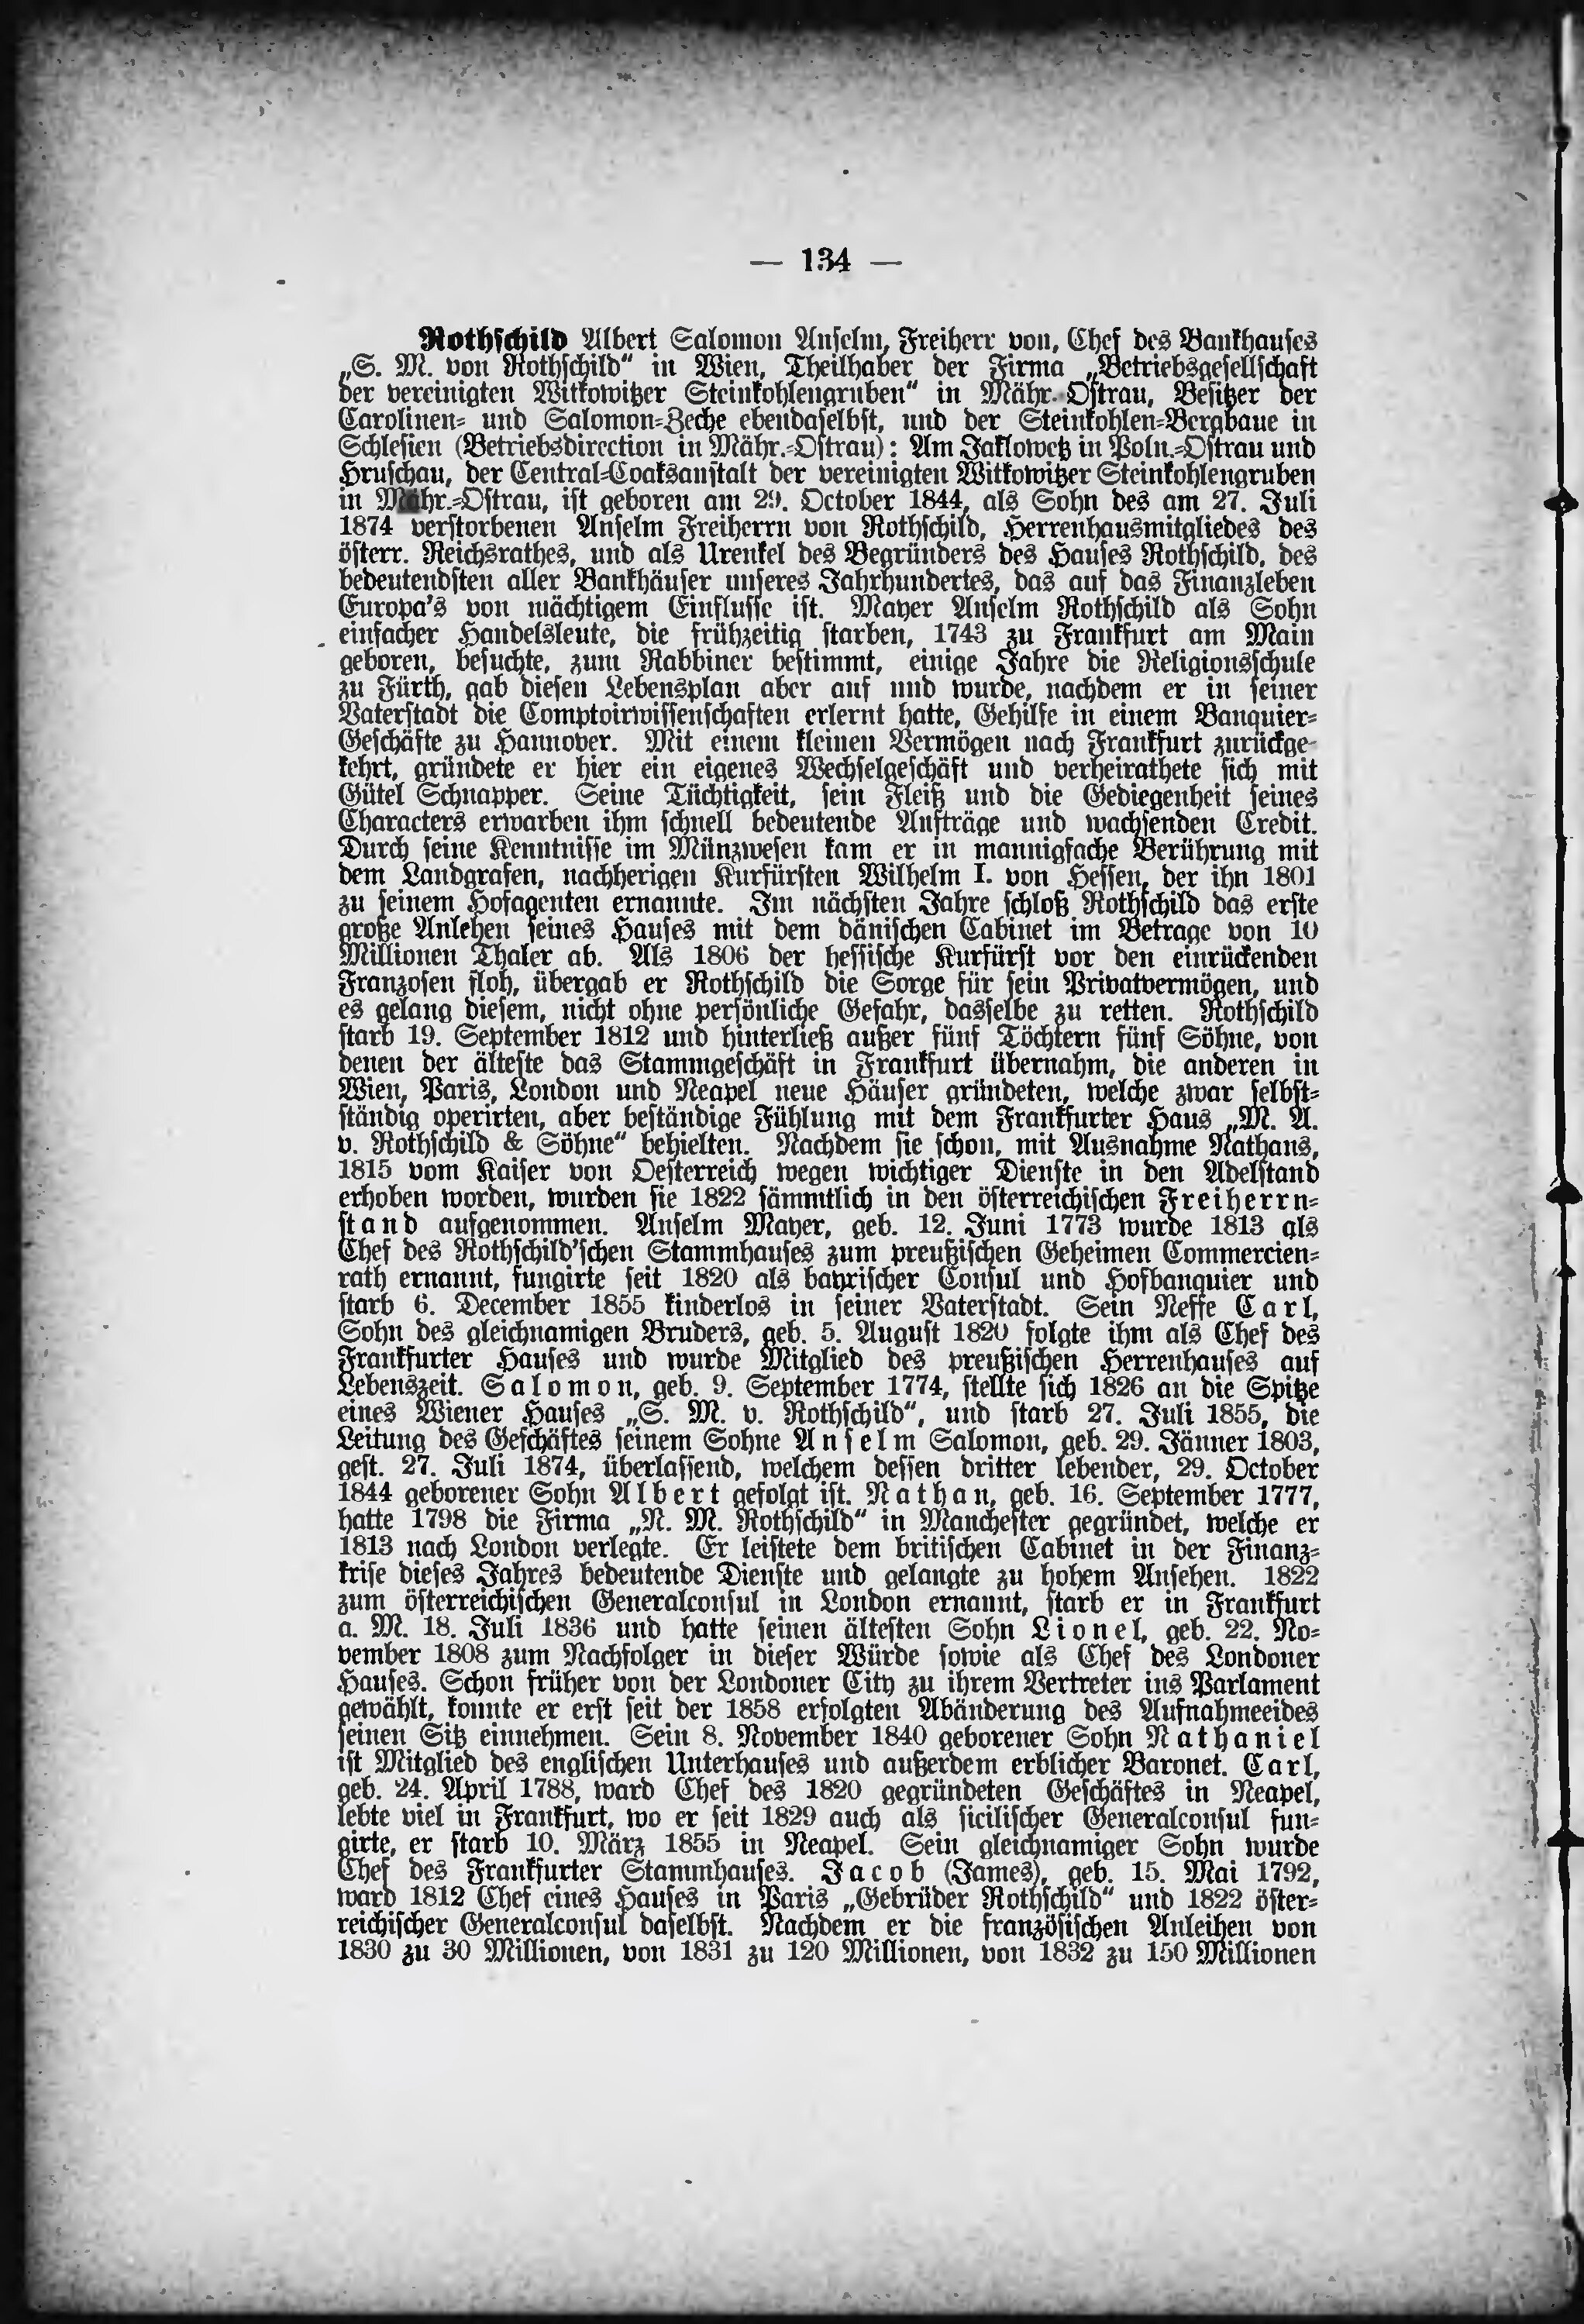 — 134 —
Rothschild Albert Salomon Anselm, Freiherr von, Chef des Bankhauses
„S. M. von Rothschild“ in Wien, Theilhaber der Firma „Betriebsgesellschaft
der vereinigten Witkowitzer Steinkohlengruben“ in Mähr.-Ostrau, Besitzer der
Carolinen- und Salomon-Zeche ebendaselbst, und der Steinkohlen-Bergbaue in
Schlesien (Betriebsdirection in Mähr.-Ostrau): Am Jaklowetz in Poln.-Ostrau und
Hruschau, der Central-Coaksanstalt der vereinigten Witkowitzer Steinkohlengruben
in Mähr.-Ostrau, ist geboren am 29. October 1844, als Sohn des am 27. Juli
1874 verstorbenen Anselm Freiherrn von Rothschild, Herrenhausmitgliedes des
österr. Reichsrathes, und als Urenkel des Begründers des Hauses Rothschild, des
bedeutendsten aller Bankhäuser unseres Jahrhundertes, das auf das Finanzleben
Europa's von mächtigem Einflusse ist. Mayer Anselm Rothschild als Sohn
einfacher Handelsleute, die frühzeitig starben, 1743 zu Frankfurt am Main
geboren, besuchte, zum Rabbiner bestimmt, einige Jahre die Religionsschule
zu Fürth, gab diesen Lebensplan aber auf und wurde, nachdem er in seiner
Vaterstadt die Comptoirwissenschaften erlernt hatte, Gehilfe in einem Banquier-
Geschäfte zu Hannover. Mit einem kleinen Vermögen nach Frankfurt zurückge-
kehrt, gründete er hier ein eigenes Wechselgeschäft und verheirathete sich mit
Gütel Schnapper. Seine Tüchtigkeit, sein Fleiß und die Gediegenheit seines
Characters erwarben ihm schnell bedeutende Aufträge und wachsenden Credit.
Durch seine Kenntnisse im Münzwesen kam er in mannigfache Berührung mit
dem Landgrafen, nachherigen Kurfürsten Wilhelm I. von Hessen, der ihn 1801
zu seinem Hofagenten ernannte. Im nächsten Jahre schloß Rothschild das erste
große Anlehen seines Hauses mit dem dänischen Cabinet im Betrage von 10
Millionen Thaler ab. Als 1806 der hessische Kurfürst vor den einrückenden
Franzosen floh, übergab er Rothschild die Sorge für sein Privatvermögen, und
es gelang diesem, nicht ohne persönliche Gefahr, dasselbe zu retten. Rothschild
starb 19. September 1812 und hinterließ außer fünf Töchtern fünf Söhne, von
denen der älteste das Stammgeschäft in Frankfurt übernahm, die anderen in
Wien, Paris, London und Neapel neue Häuser gründeten, welche zwar selbst-
ständig operirten, aber beständige Fühlung mit dem Frankfurter Haus „M. A.
v. Rothschild & Söhne“ behielten. Nachdem sie schon, mit Ausnahme Nathans,
1815 vom Kaiser von Oesterreich wegen wichtiger Dienste in den Adelstand
erhoben worden, wurden sie 1822 sämmtlich in den österreichischen Freiherrn-
stand aufgenommen. Anselm Mayer, geb. 12. Juni 1773 wurde 1813 als
Chef des Rothschild'schen Stammhauses zum preußischen Geheimen Commercien-
rath ernannt, fungirte seit 1820 als bayrischer Consul und Hofbanquier und
starb 6. December 1855 kinderlos in seiner Vaterstadt. Sein Neffe Carl,
Sohn des gleichnamigen Bruders, geb. 5. August 1820 folgte ihm als Chef des
Frankfurter Hauses und wurde Mitglied des preußischen Herrenhauses auf
Lebenszeit. Salomon, geb. 9. September 1774, stellte sich 1826 an die Spitze
eines Wiener Hauses „S. M. v. Rothschild“, und starb 27. Juli 1855, die
Leitung des Geschäftes seinem Sohne Anselm Salomon, geb. 29. Jänner 1803,
gest. 27. Juli 1874, überlassend, welchem dessen dritter lebender, 29. October
1844 geborener Sohn Albert gefolgt ist. Nathan, geb. 16. September 1777,
hatte 1798 die Firma „N. M. Rothschild“ in Manchester gegründet, welche er
1813 nach London verlegte. Er leistete dem britischen Cabinet in der Finanz-
krise dieses Jahres bedeutende Dienste und gelangte zu hohem Ansehen. 1822
zum österreichischen Generalconsul in London ernannt, starb er in Frankfurt
a. M. 18. Juli 1836 und hatte seinen ältesten Sohn Lionel, geb. 22. No-
vember 1808 zum Nachfolger in dieser Würde sowie als Chef des Londoner
Hauses. Schon früher von der Londoner City zu ihrem Vertreter ins Parlament
gewählt, konnte er erst seit der 1858 erfolgten Abänderung des Aufnahmeeides
seinen Sitz einnehmen. Sein 8. November 1840 geborener Sohn Nathaniel
ist Mitglied des englischen Unterhauses und außerdem erblicher Baronet. Carl,
geb. 24. April 1788, ward Chef des 1820 gegründeten Geschäftes in Neapel,
lebte viel in Frankfurt, wo er seit 1829 auch als sicilischer Generalconsul fun-
girte, er starb 10. März 1855 in Neapel. Sein gleichnamiger Sohn wurde
Chef des Frankfurter Stammhauses. Jacob (James), geb. 15. Mai 1792,
ward 1812 Chef eines Hauses in Paris „Gebrüder Rothschild“ und 1822 öster-
reichischer Generalconsul daselbst. Nachdem er die französischen Anleihen von
1830 zu 30 Millionen, von 1831 zu 120 Millionen, von 1832 zu 150 Millionen